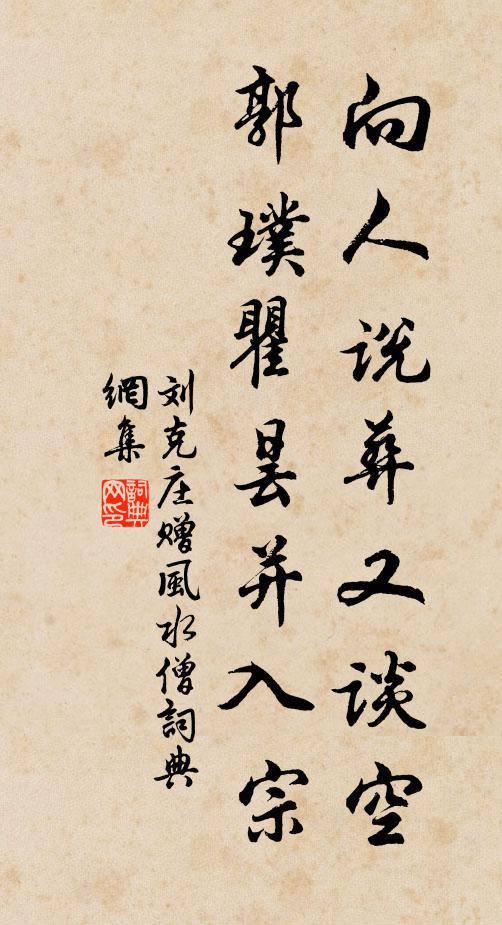 向人说葬又谈空
郭璞瞿昙并入宗
刘克庄赠風水僧詞典
網集
詞典
网印